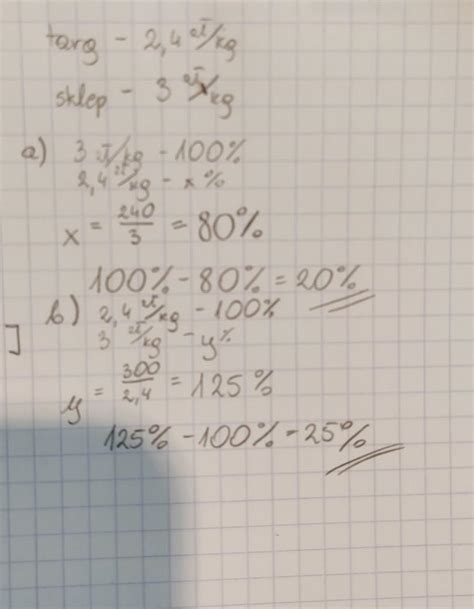 targ - 2,4 zł/kg
sklep - 3 zł/kg
a) 3 zł/kg - 100%
2,4 zł/kg - x %
x = 240/3 = 80%
100% - 80% = 20%
b) 2,4 zł/kg - 100%
3 zł/kg - y%
y = 300/2,4 = 125%
125% - 100% - 25%